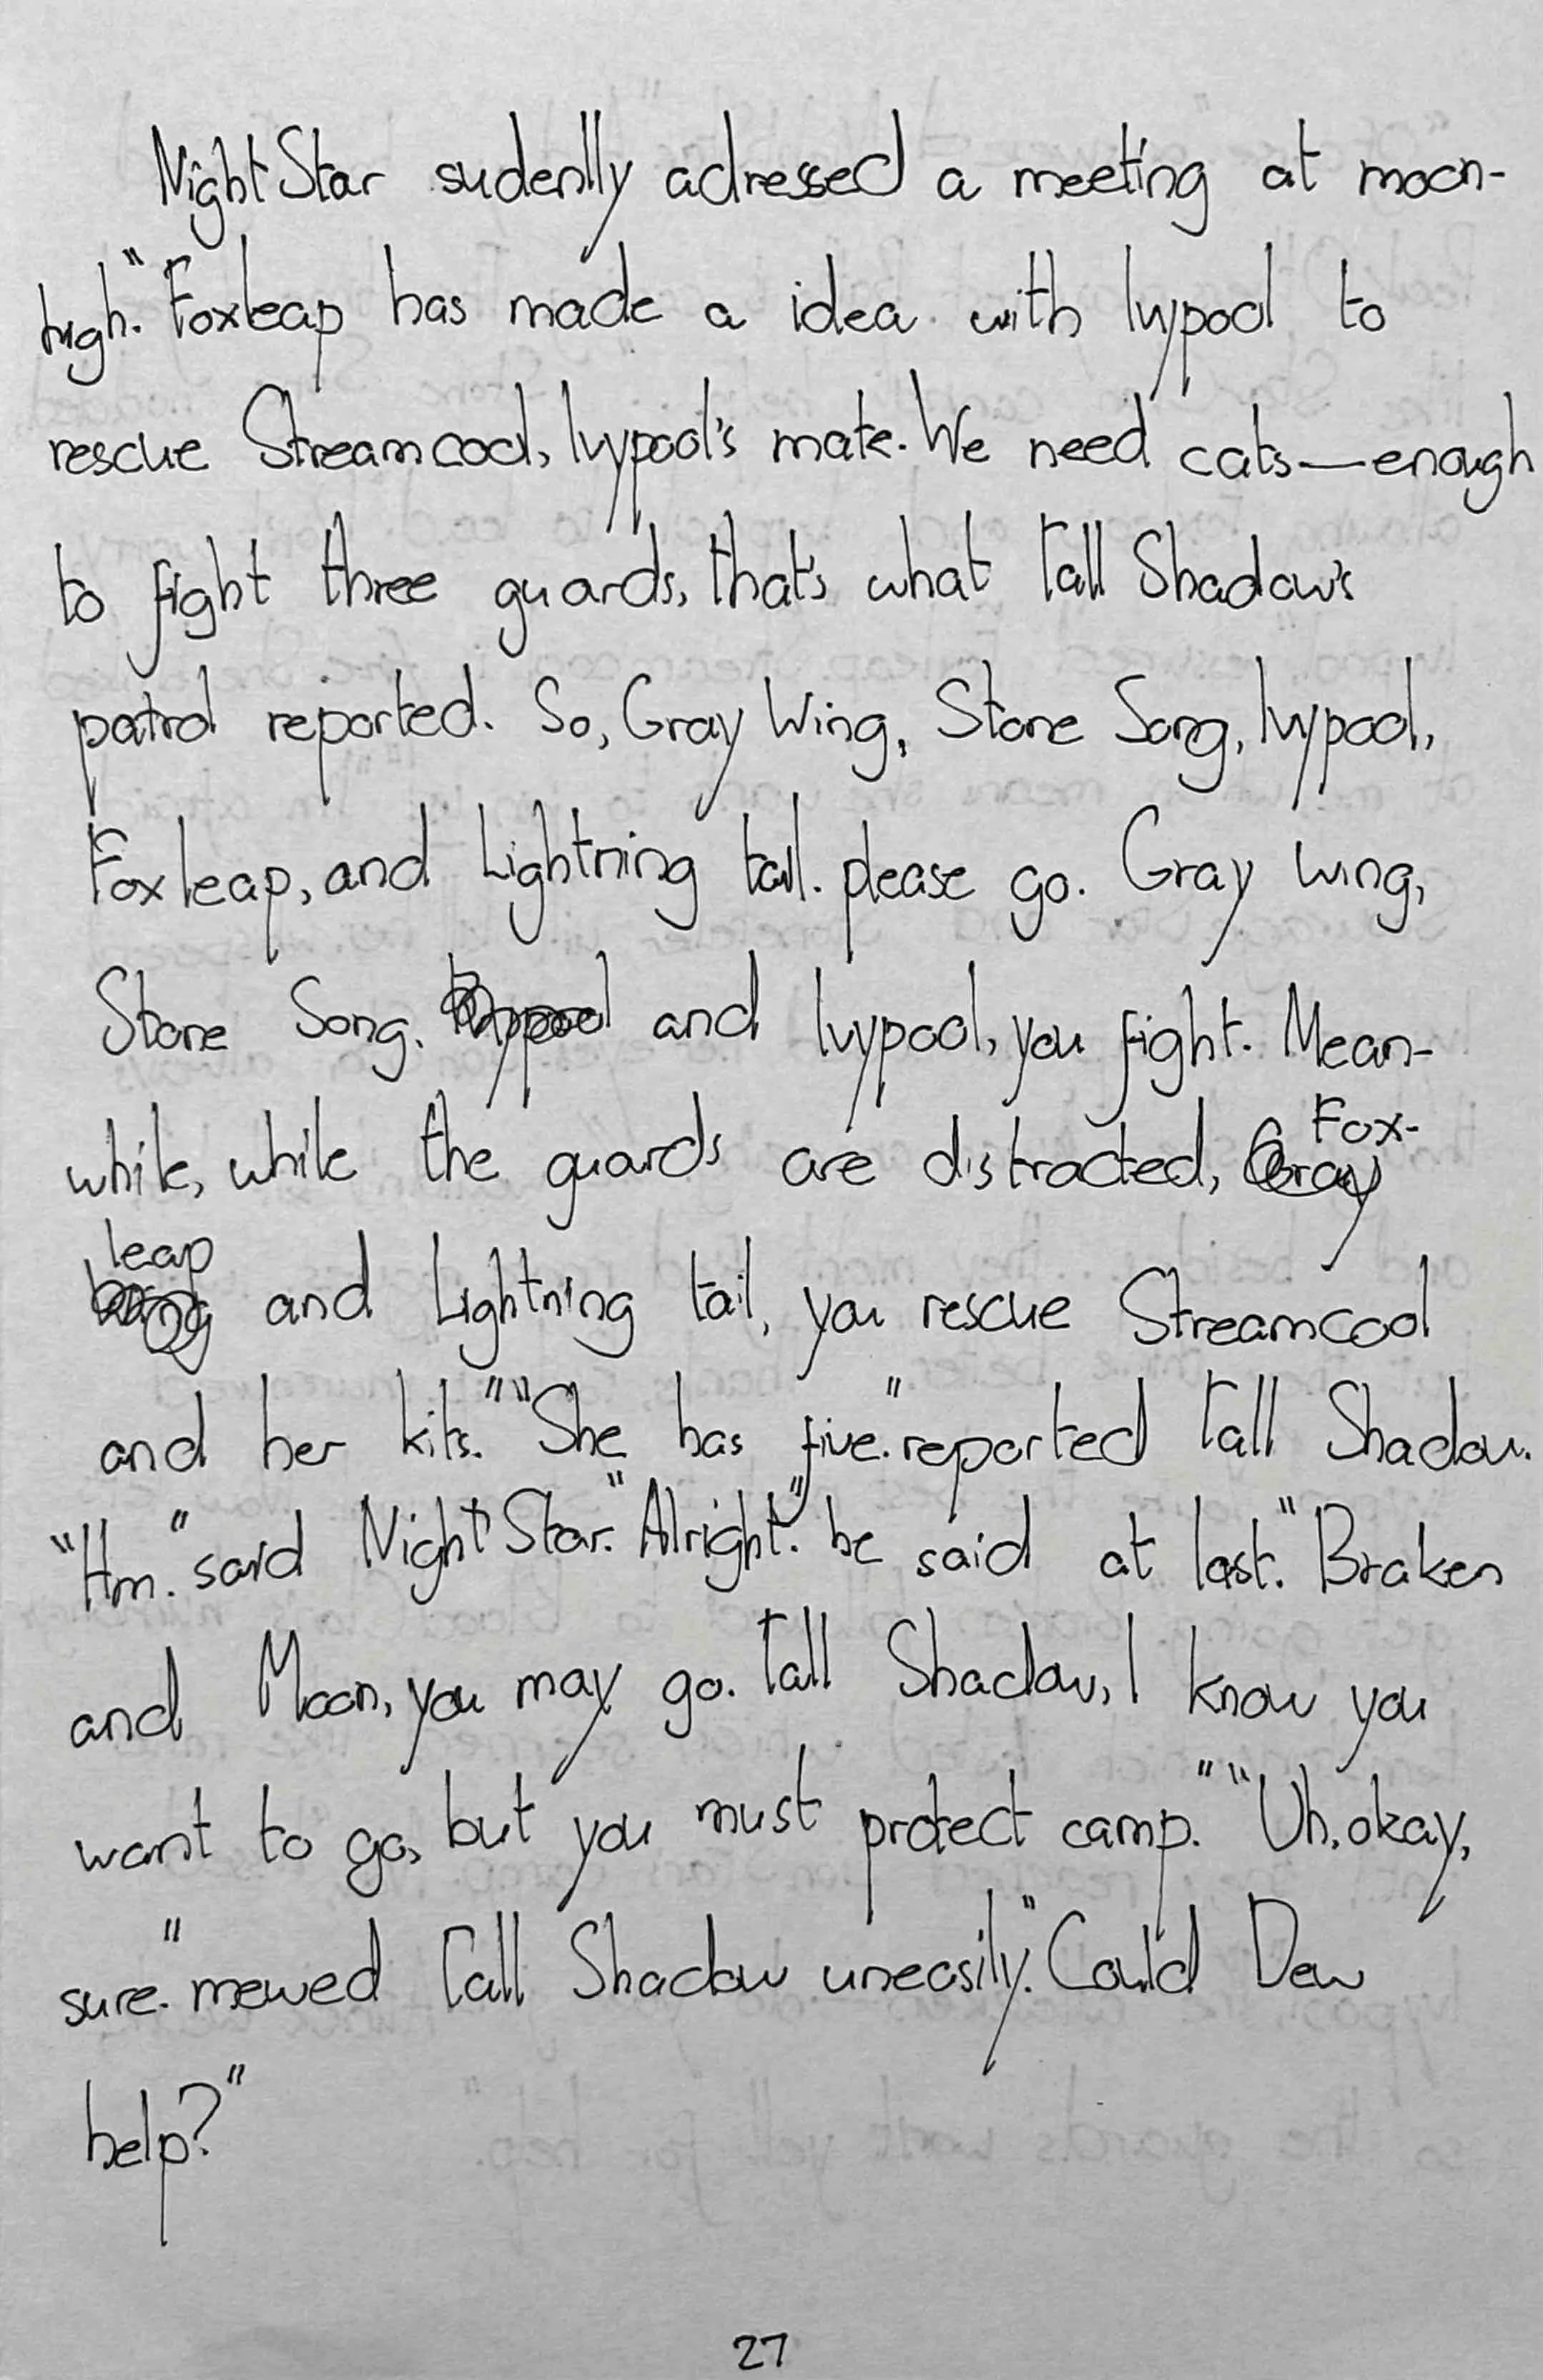 Night Star sudenlly adressed a meeting at moon-
high. "Foxleap has made a idea with Ivypool to
rescue Streamcool, Ivypool's mate. We need cats—enough
to fight three guards, that's what Tall Shadow's
patrol reported. So, Gray Wing, Stone Song, Ivypool,
Foxleap, and Lightning tail. please go. Gray wing,
Stone Song, Ivypool and Ivypool, you fight. Mean-
while, while the guards are distracted, Gray Fox-
leap wing and Lightning tail, you rescue Streamcool
and her kits." "She has five." reported Tall Shadow.
"Hm." said Night Star. "Alright." he said at last. "Braken
and Moon, you may go. Tall Shadow, I know you
want to go, but you must protect camp." "Uh, okay,
sure." mewed Tall Shadow uneasily. "Could Dew
help?"
27